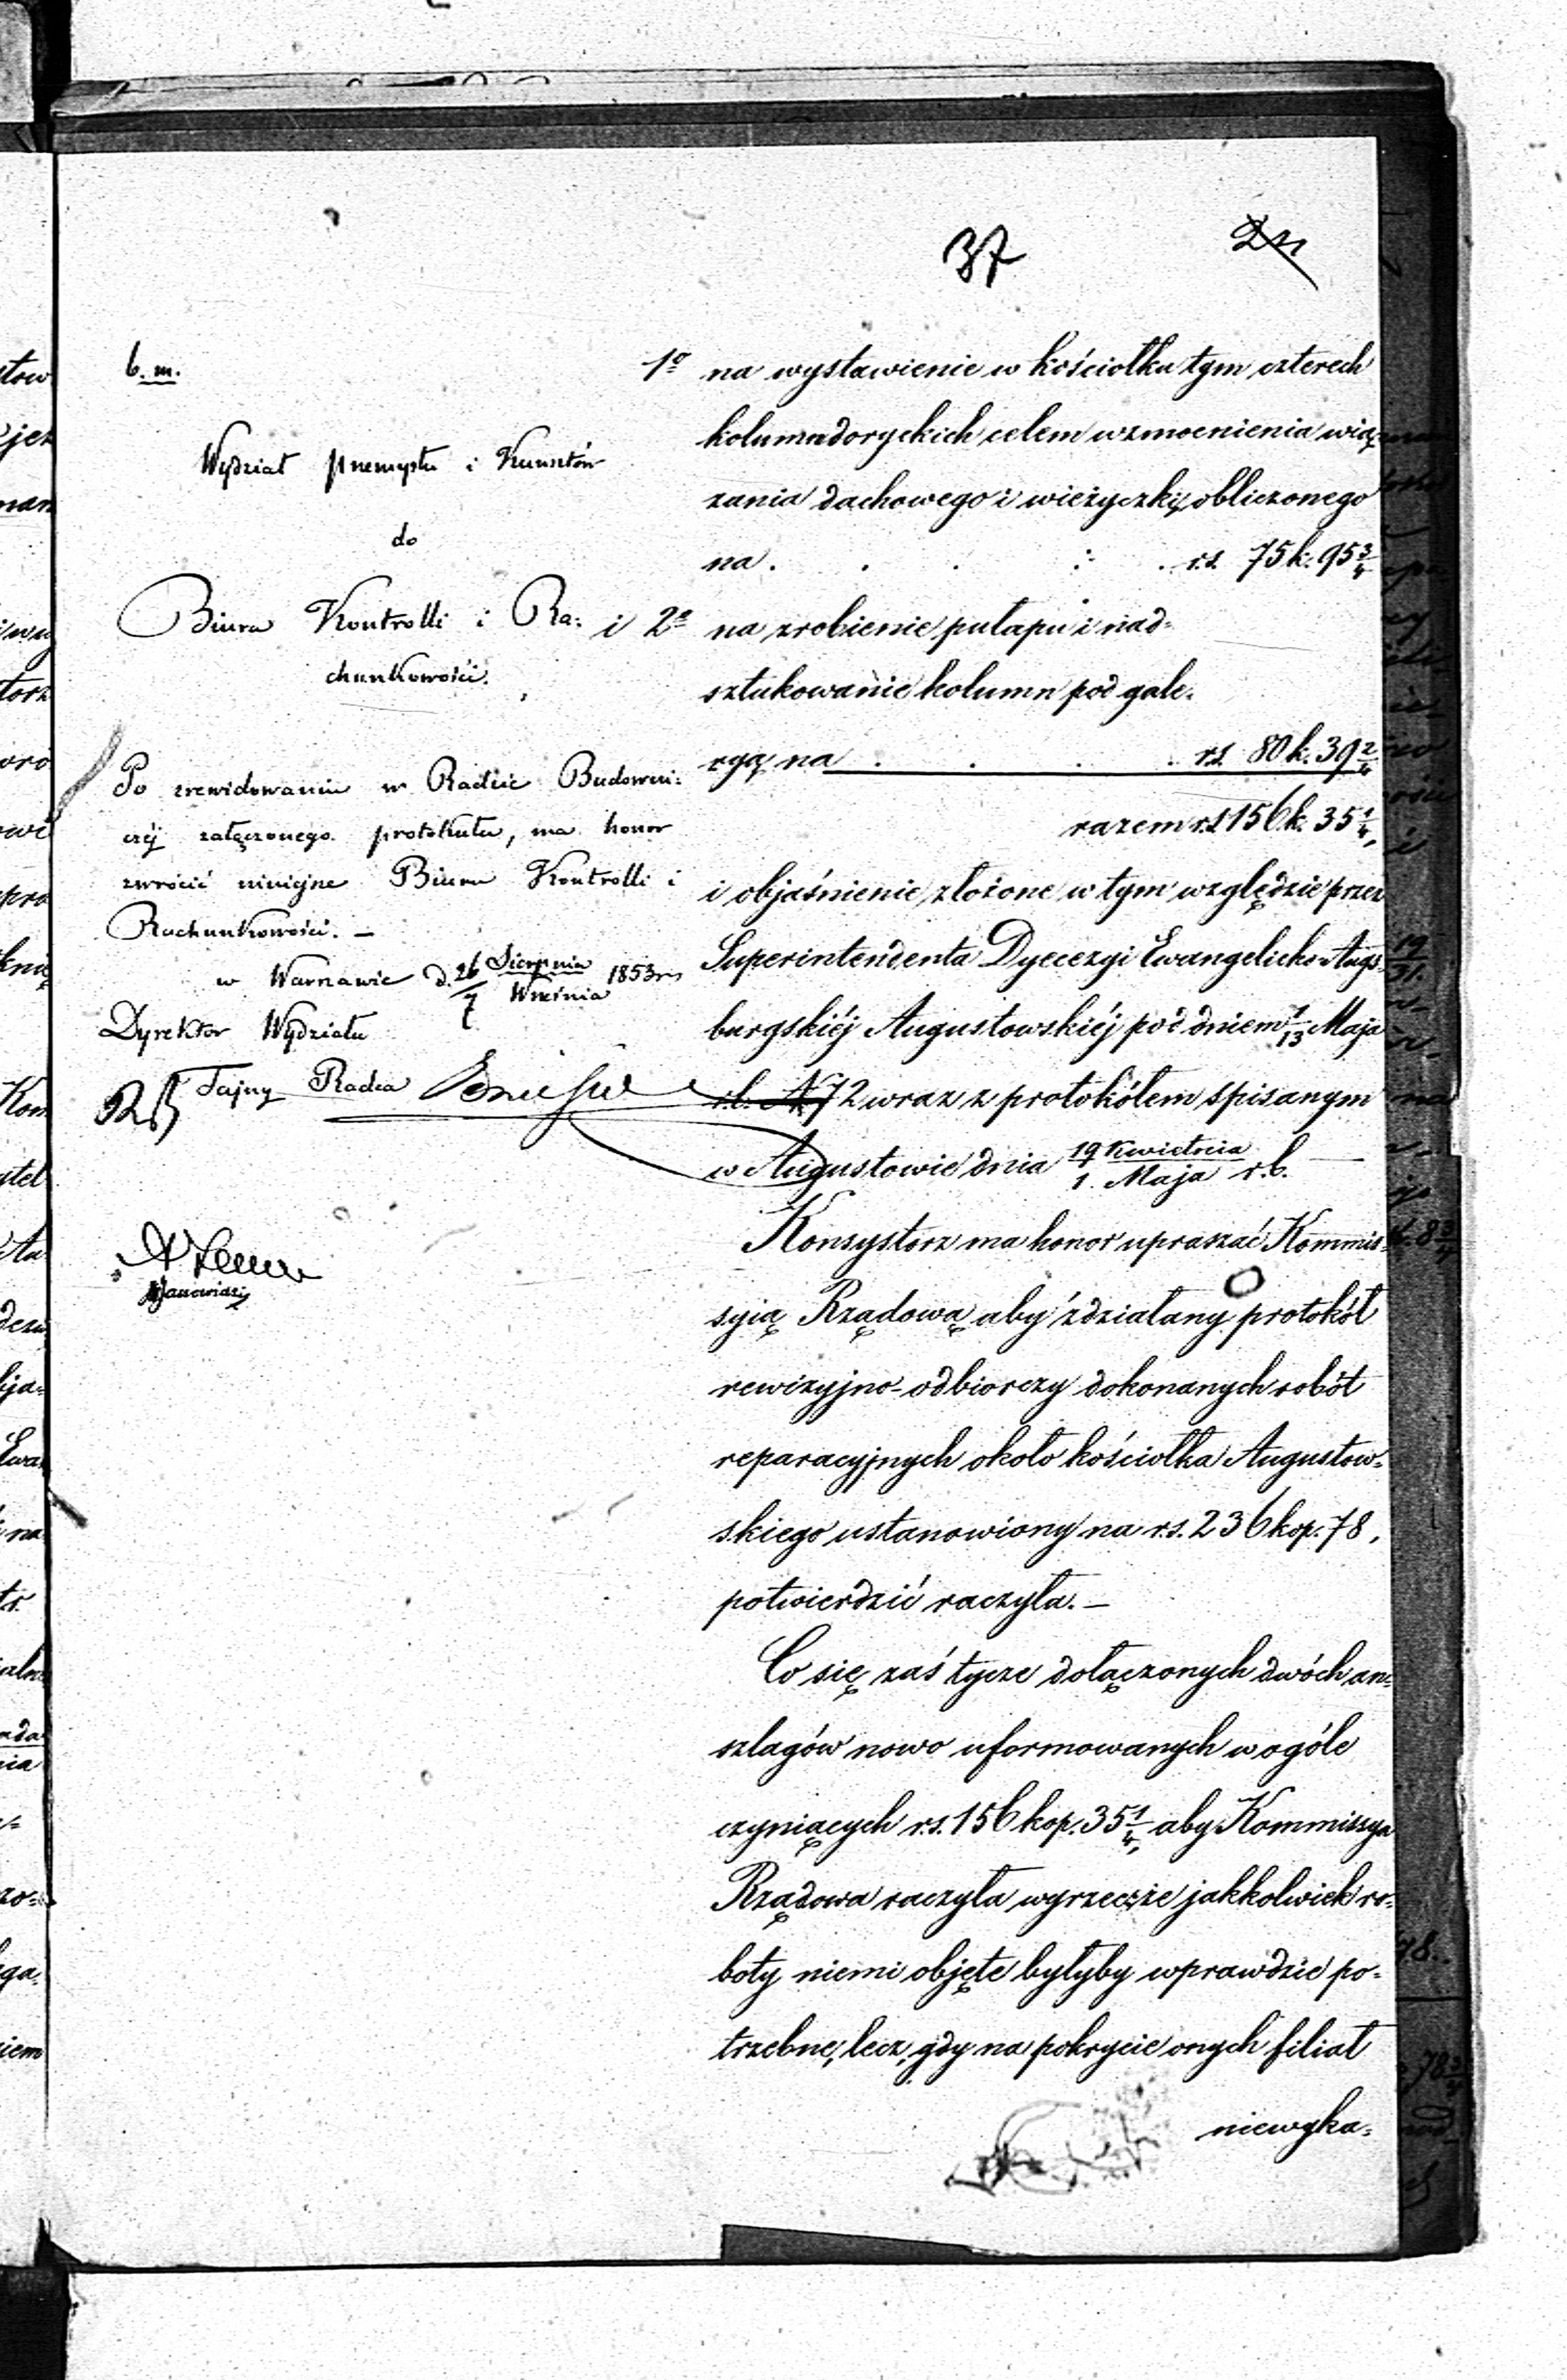 37
b. m.
Wydział Przemysłu i Kunsztów
do
Biura Kontrolli i Ra:
chunkowości.
Po zrewidowaniu w Radzie Budowni:
czéj załączonego protokułu, ma honor
zwrócić niniejsze Biuru Kontrolli i
Rachunkowości. —
w Warszawie d. 26 Sierpnia / 7 Września 1853 r.
Dyrektor Wydziału
Tajny Radca
1º na wystawienie w kościołku tym czterech
kolumn doryckich celem wzmocnienia wią-
zania dachowego i wieżyczki, obliczonego
na . . . : . rs. 75 k. 95 3/4
i 2º na zrobienie pułapu i nad-
sztukowanie kolumn pod gale-
ryą na . . . . rs. 80 k. 39 2/4
razem rs. 156 k. 35 1/4,
i objaśnienie, złożone w tym względzie przez
Superintendenta Dyecezyi Ewangelicko Augs-
burgskiéj Augustowskiéj pod dniem 1/13 Maja
r. b. N 72 wraz z protokółem spisanym
w Augustowie dnia 19 Kwietnia / 1 Maja r. b. —
Konsystorz ma honor upraszać Kommis-
syią Rządową aby zdziałany protokół
rewizyjno-odbiorczy dokonanych robót
reparacyjnych około kościołka Augustow-
skiego ustanowiony na rs. 236 kop. 78,
potwierdzić raczyła. —
Co się zaś tycze dołączonych dwóch an-
szlagów nowo uformowanych w ogóle
czyniących rs. 156 kop. 35 1/4, aby Kommissya
Rządowa raczyła wyrzec, że jakkolwiek ro-
boty niemi objęte byłyby wprawdzie po-
trzebne, lecz, gdy na pokrycie onych filiał
niewyka-